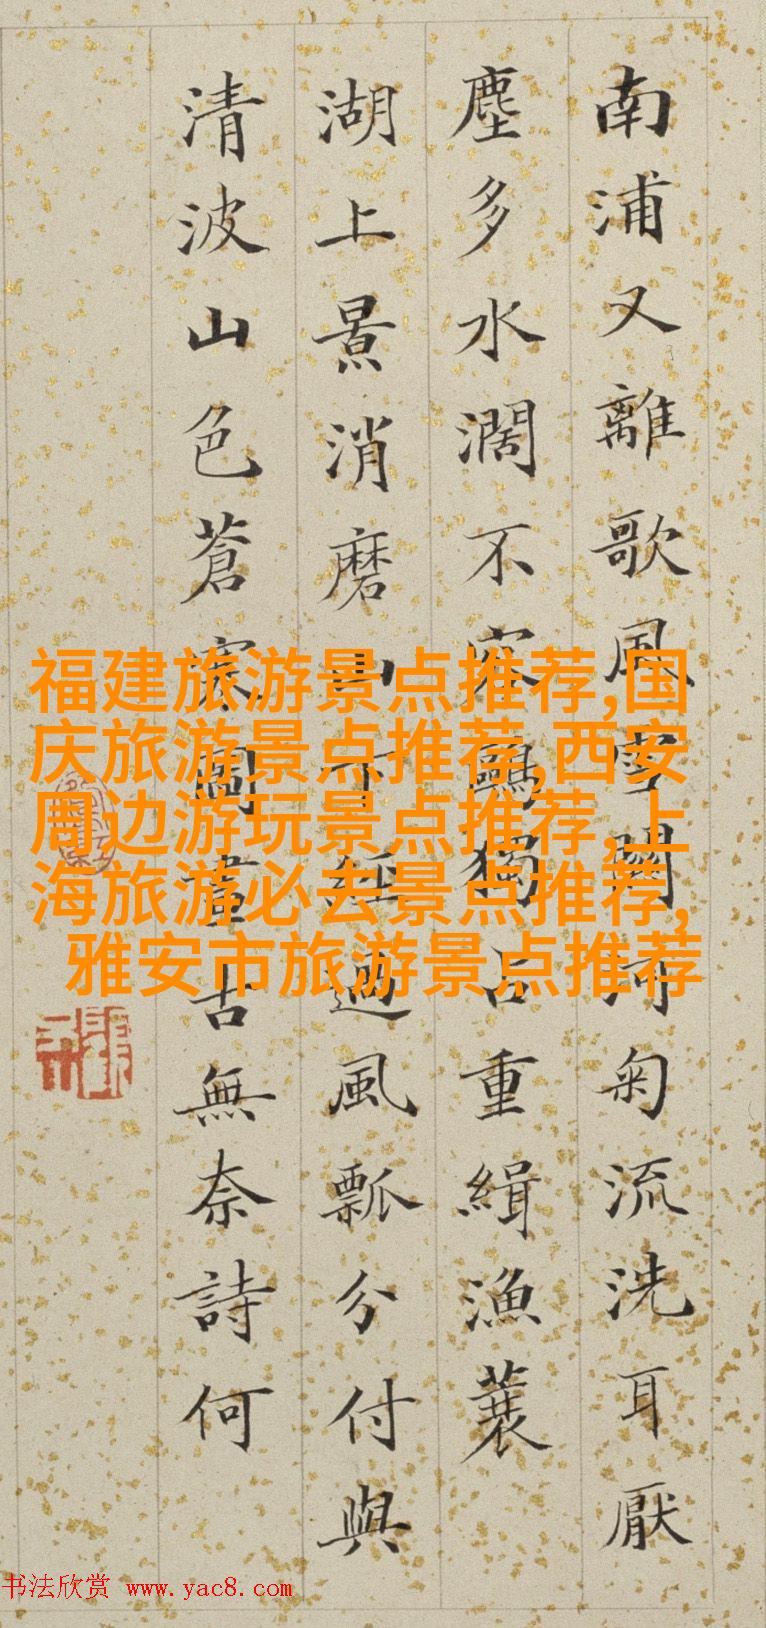 南浦又離歌風雪關河匊流洗耳厭
塵多水濶不容鷗獨占重緝漁蓑
湖上景消磨山下經過風瓢分付與
清波山色蒼寒圖畫古無奈詩何
福建旅游景点推荐,国
庆旅游景点推荐,西安
周边游玩景点推荐,上
海旅游必去景点推荐,
雅安市旅游景点推荐
书法欣赏 www.yac8.com